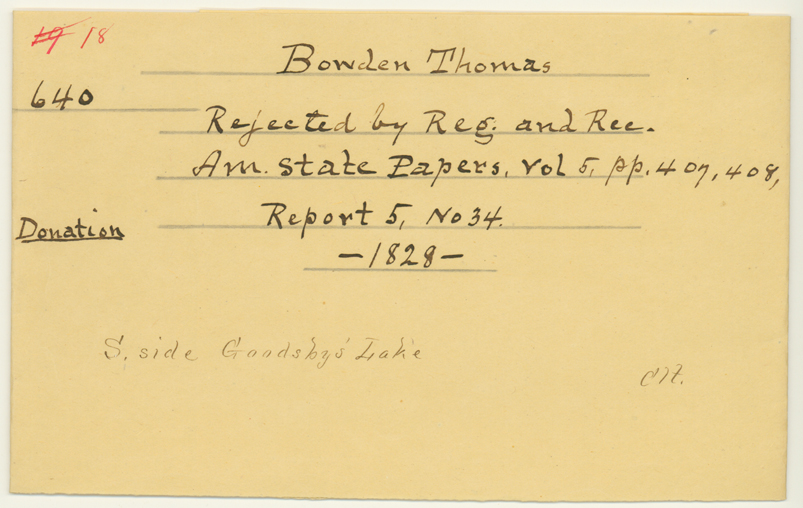 19 18
Bowden Thomas
640
Rejected by Reg. and Rec.
Am. State Papers, Vol 5, pp. 407, 408,
Report 5, No 34.
Donation
—1828—
S. side Goodsbys' Lake